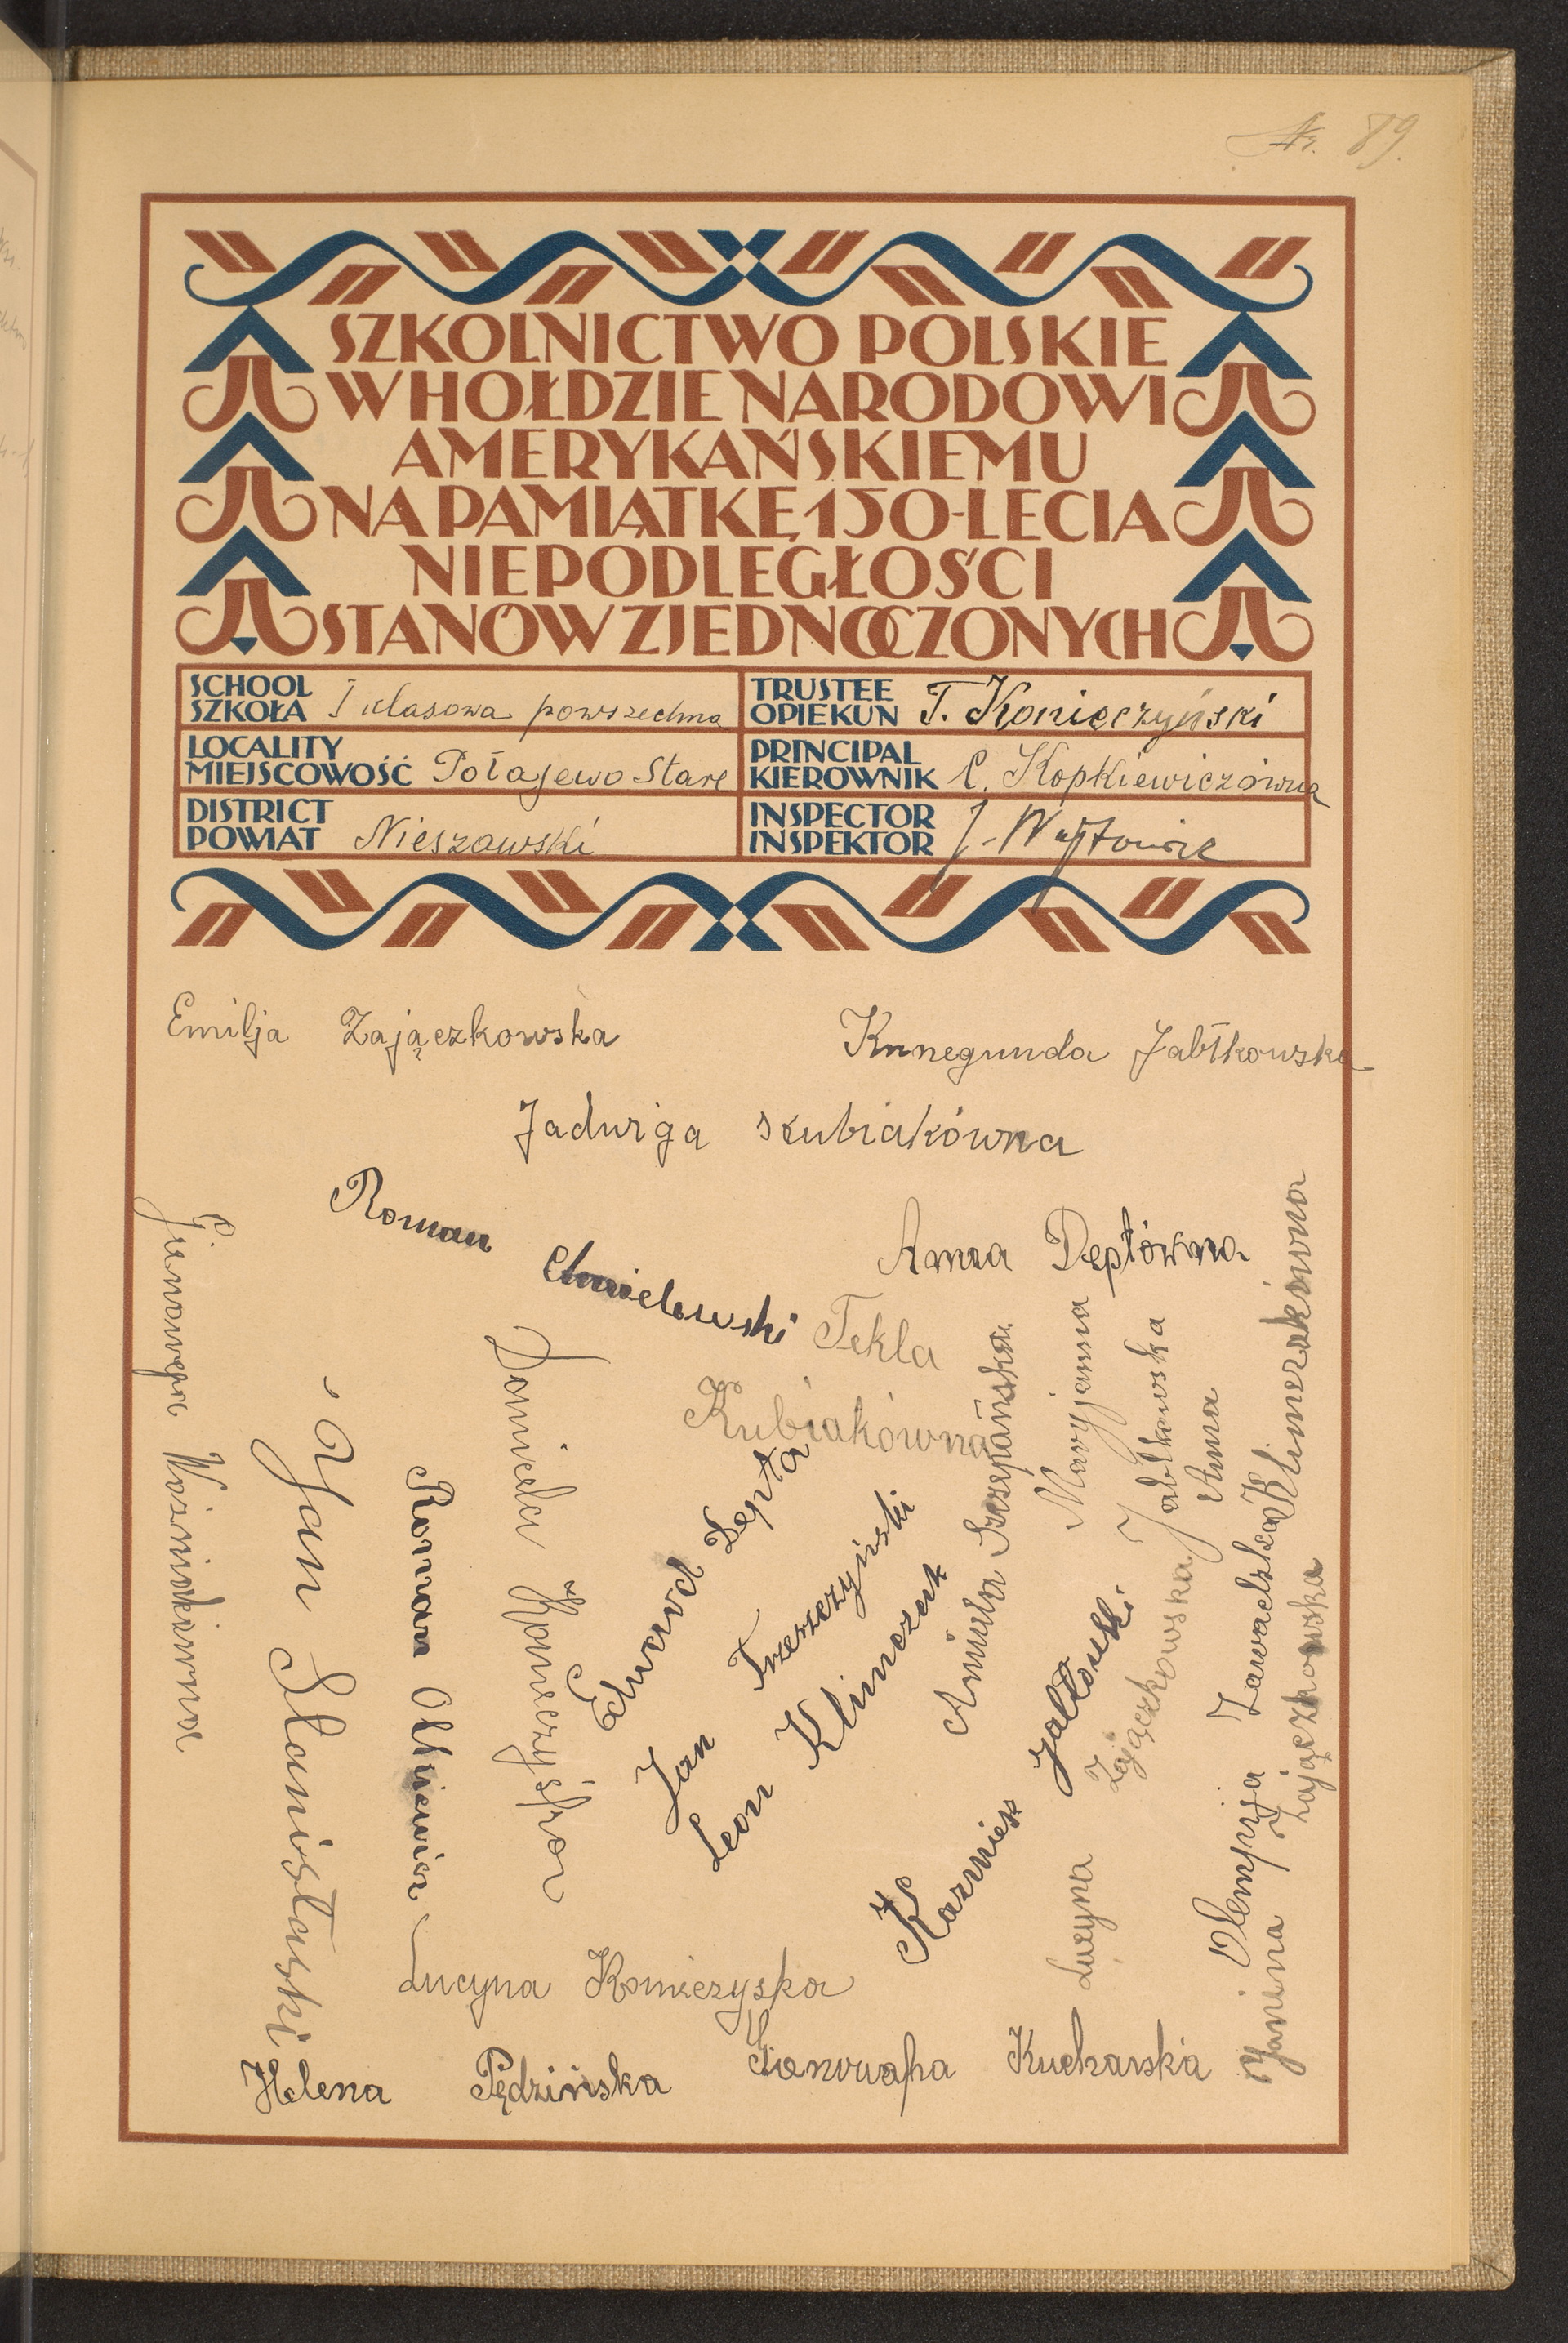 Nr. 89.
SZKOLNICTWO POLSKIE
W HOŁDZIE NARODOWI
AMERYKAŃSKIEMU
NA PAMIĄTKĘ 150-LECIA
NIEPODLEGŁOŚCI
STANÓW ZJEDNOCZONYCH
SCHOOL
SZKOŁA I klasowa powszechna
TRUSTEE
OPIEKUN T. Konieczyński
LOCALITY
MIEJSCOWOŚĆ Połajewo Stare
PRINCIPAL
KIEROWNIK C. Kopkiewiczówna
DISTRICT
POWIAT Nieszawski
INSPECTOR
INSPEKTOR J. Wójtowicz
Emilja Zajączkowska
Knnegunda Jabłkowska
Jadwiga skubiakówna
Roman Chmielewski
Anna Deptówna
Tekla
Kubiakówna
Gienowepa Woźniakówna
Jan Stanisławski
Roman Olkiewicz
Daniela
Edward Depta
Jan Trzeszczyński
Leon Klimczak
Aniela Szczepańska
Maryjanna
Jabłkowska
Kazmierz Jabłoński
Lucyna Zajączkowska
Anna Klimczakówna
Olempija Zawadzka
Janina Zajączkowska
Lucyna Konieczyska
Helena Pędzińska
Gienowapa Kucharska